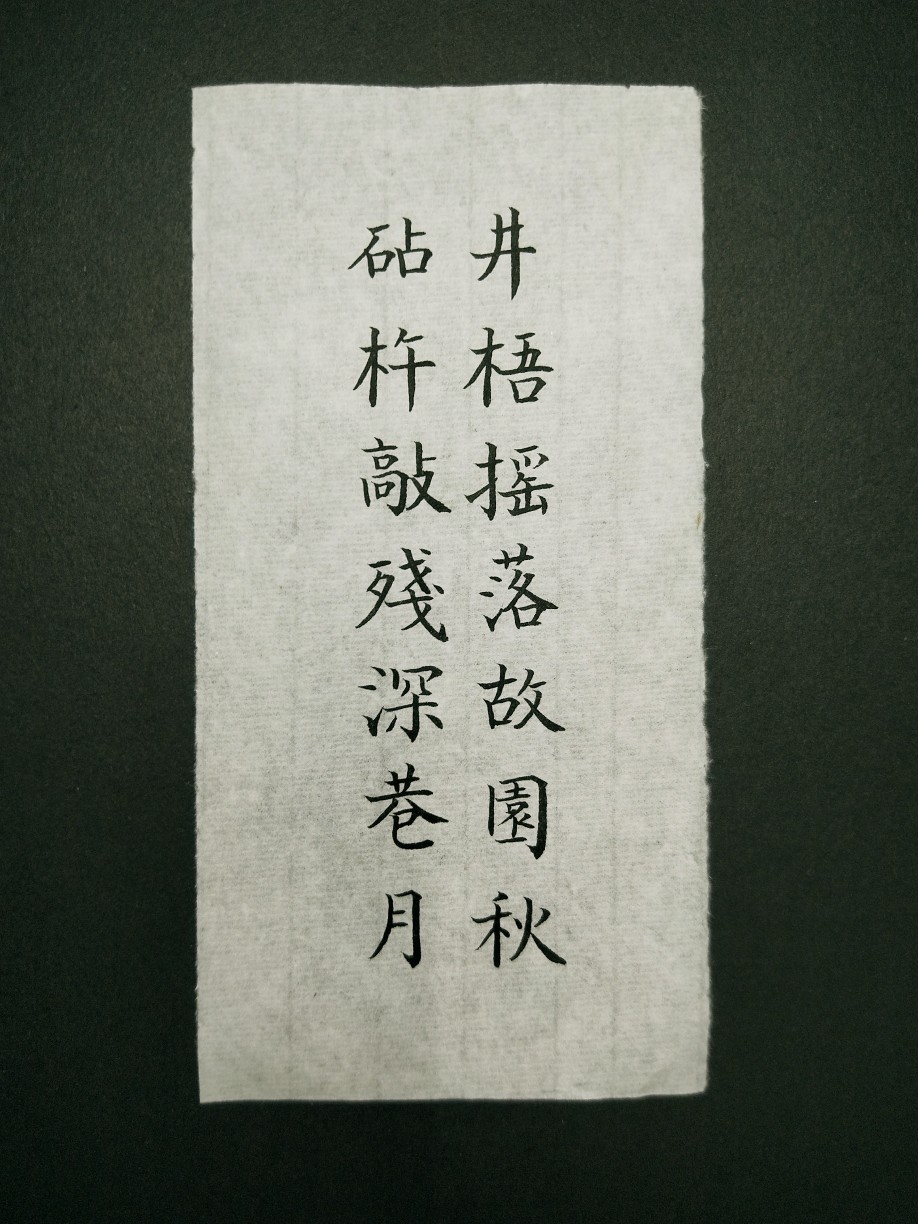 井梧摇落故園秋
砧杵敲殘深巷月